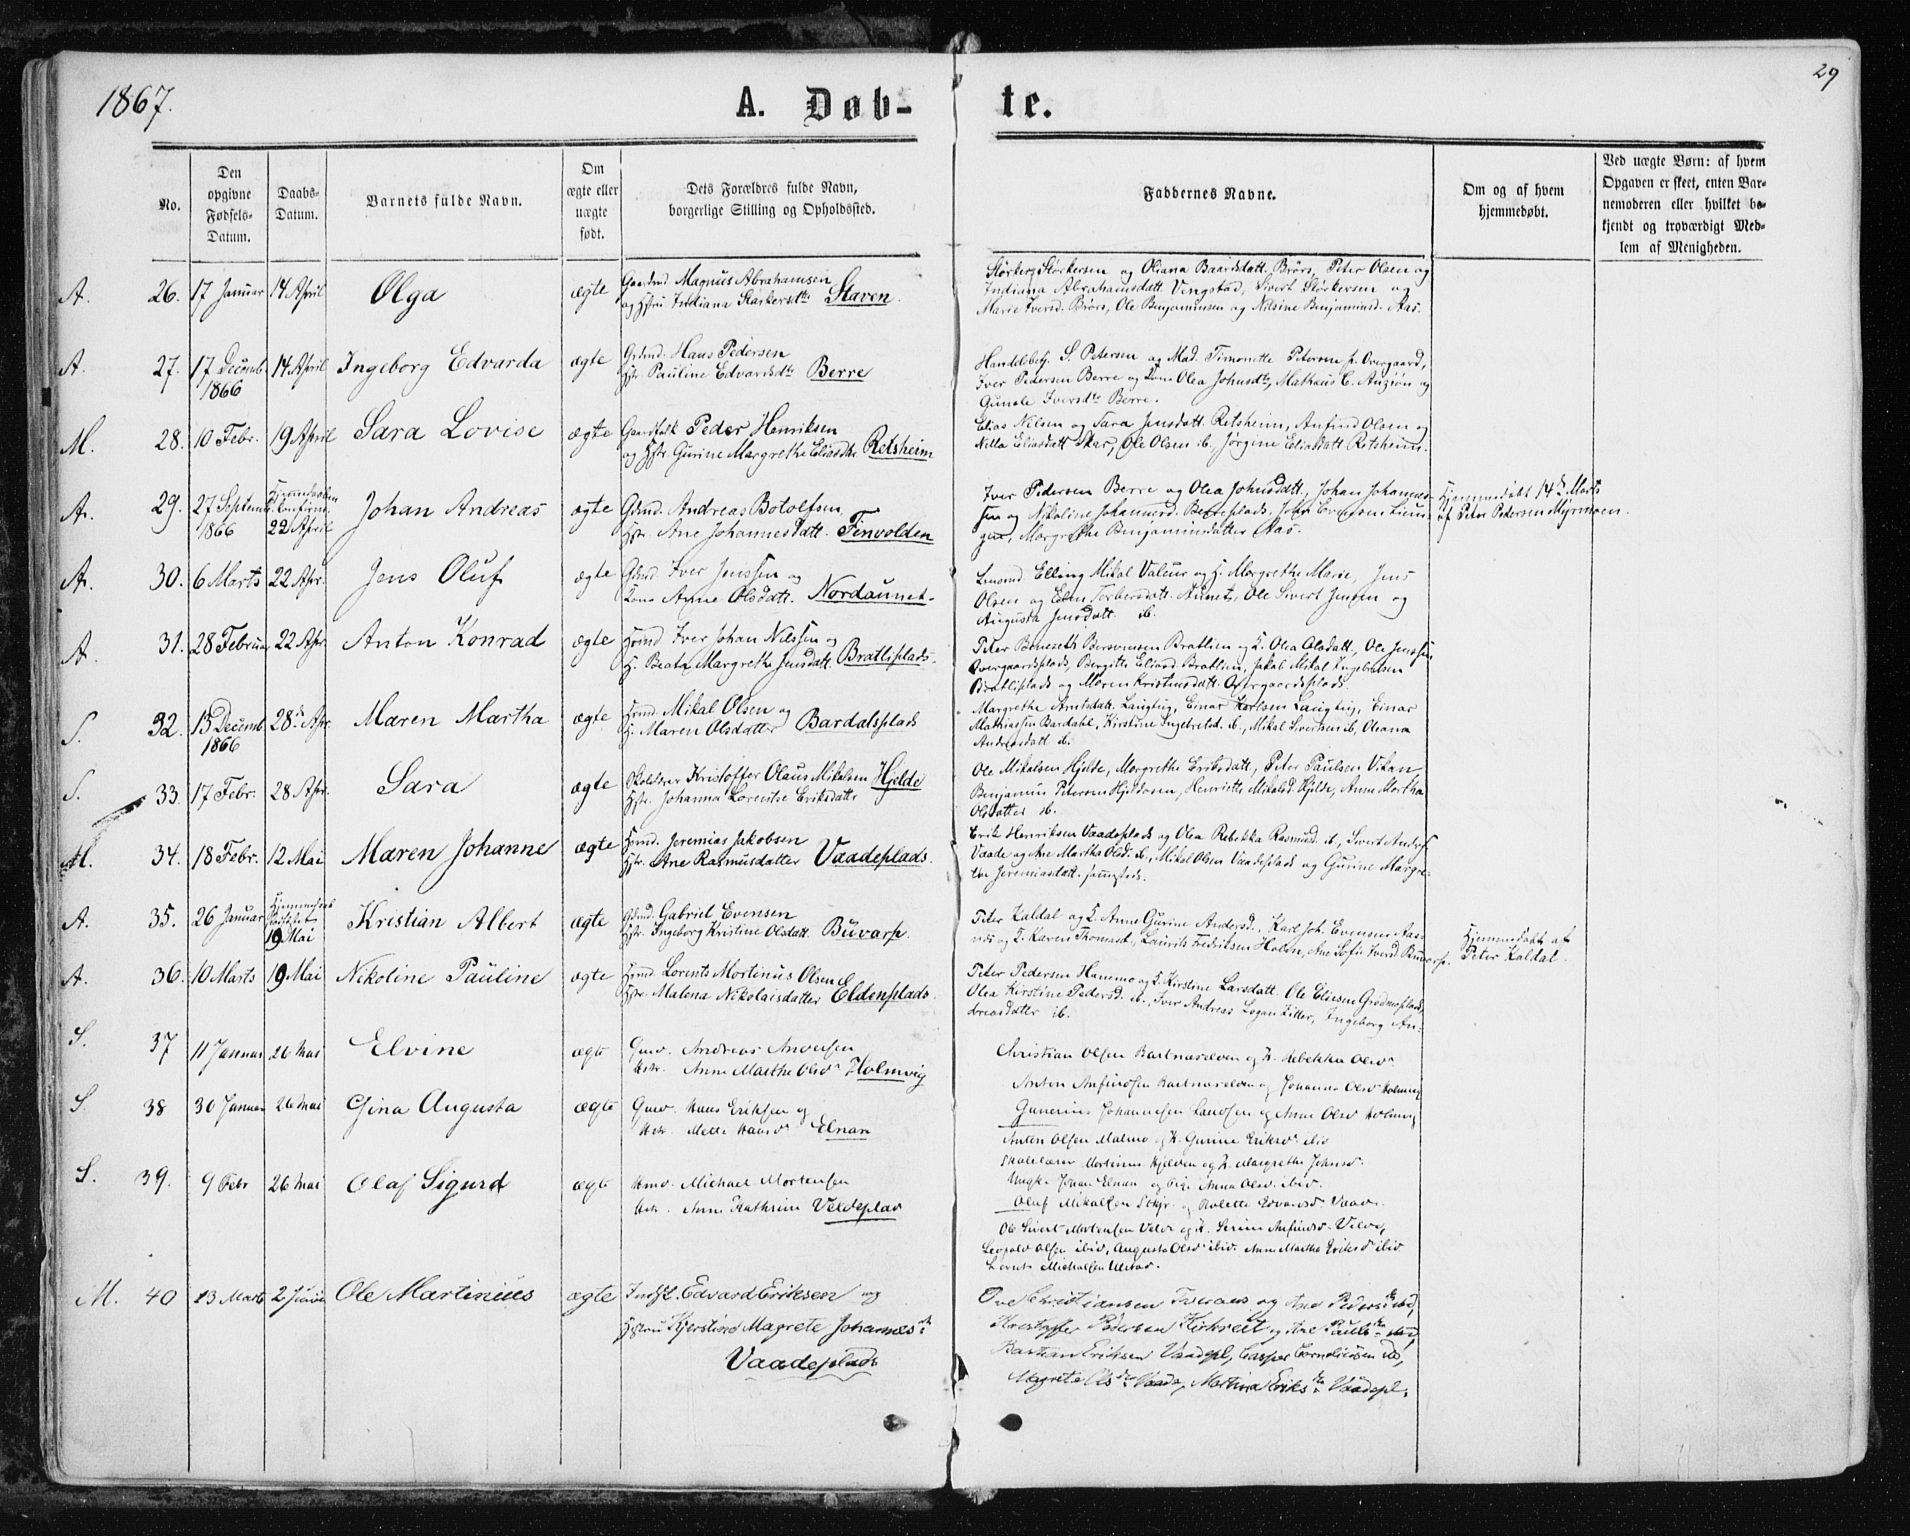 1867.
A. Døbte.
29
No.
Den opgivne Fødsels-Datum.
Daabs-Datum.
Barnets fulde Navn.
Om ægte eller uægte født.
Dets Forældres fulde Navn, borgerlige Stilling og Opholdssted.
Faddernes Navne.
Om og af hvem hjemmedøbt.
Ved uægte Børn: af hvem Opgaven er skeet, enten Barnemoderen eller hvilket bekjendt og troværdigt Medlem af Menigheden.
A. 26. 17 Januar 14 April Olga ægte Gaardmd Magnus Abrahamsen
og Hstru Indiana Størkersdtr Staven.
Størker Størkersen og Oliana Baardsdatt. Brørs, Peter Olsen og
Indiana Abrahamsdatt Vengstad, Sivert Størkersen og
Marie Iversd. Brørs, Ole Benjaminsen og Nilsine Benjaminsd. Aas.
A. 27. 17 Decemb. 14 April Ingeborg Edvarda ægte Grdmd. Hans Pedersen
1866 Hstr. Pauline Edvardsdtr Berre
Handelsbetj. S. Petersen og Mad. Timonette Petersen p. Overgaard,
Iver Pedersen Berre og Kone Olea Johnsdtr, Mathæus C. Auziøn og
Gunele Iversdtr Berre.
M. 28. 10 Febr. 19 April Sara Lovise ægte Gaardfolk Peder Henriksen
og Hstr. Gurine Margrethe Eliasdtr Retsheim
Elias Nilsen og Sara Jensdatt. Retsheim, Anfind Olsen og
Nella Eliasdatt Skar, Ole Olsen ib., Jørgine Eliasdatt Retsheim.
A. 29. 27 Septemb. Johan Andreas ægte Grdmd. Andreas Botolfsen
1866 22 April Hstr. Ane Johannesdatt. Finvolden
Iver Pedersen Berre og Olea Johnsdatt, Johan Johannes-
sen og Nikoline Johannesd. Berreplads, John Evensen
Margrethe Benjaminsdatter Aas.
Hjemmedøbt 14de Marts
af Peter Pedersen Myrmoen.
A. 30. 6 Marts 22 Apr. Jens Oluf ægte Grdmd. Iver Jenssen og
Kone Anne Olsdatt. Nordaunet.
Lensmd Elling Mikal Valeur og H. Margrethe Marie, Jens
Olsen og Elen Torbersdatt. Aunet, Ole Sivert Jensen og
Augusta Jensdatt. ib.
A. 31. 28 Februar 22 Apr. Anton Konrad ægte Hmd Iver Johan Nilssen og
H. Beata Margrethe Jensdatt. Bratliplads.
Peter Benseth Berssvensen Brattien og K. Olea Olsdatt, Ole Jenssen
Overgaardsplads, Bergitte Eliasd Brattien, Jakob Mikal Ingebrtsen
Bratliplads og Maren Kristensdatt. Overgaardsplads.
S. 32. 13 Decemb. 28de Apr. Maren Martha ægte Hmd. Mikal Olsen og
1866 H. Maren Olsdatter Bardalsplads
Margrethe Arntsdatt. Langtrig, Einar Karlsen Langtrig, Einar
Mathiassen Bardahl, Kirstine Ingebretsd. ib., Mikal Sivertsen ib, Oleana
Andreasdatt ib.
S. 33. 17 Febr. 28 Apr. Sara ægte Skolelærer Kristoffer Olaus Mikalsen Hjelde
Hstr. Johanna Lorentse Eriksdatter
Ole Mikalsen Hjelde, Margrethe Eriksdatt, Peter Paulsen Vikan
Benjamin Petersen Hjeldesen, Henriette Mikalsd Hjelde, Anne Martha
Olsdatter ib.
M. 34. 18 Febr. 12 Mai Maren Johanne ægte Hmd. Jeremias Jakobsen
Hstr. Ane Rasmusdatter Vaadeplads.
Erik Henriksen Vaadeplads og Olea Rebekka Rasmusd. ib., Sivert Anders
Vaade og Ane Martha Olsd. ib., Mikal Olsen Vaadeplads og Gurine Margre-
the Jeremiasdatt. sammesteds.
A. 35. 26 Januar Kristian Albert ægte Grdmd. Gabriel Evensen
19 Mai Hstr. Ingeborg Kristine Olsdatt. Buvarp.
Peter Kaldal og K. Anne Gurine Andersd., Karl Joh. Evensen Aas-
nes og K. Karen Thomasd, Laurits Fredriksen Holden, Ane Sofie Iversd Buvarp.
Hjemmedøbt af
Peter Kaldal.
A. 36. 10 Marts 19 Mai Nikoline Pauline ægte Hmd. Lorents Mortinus Olsen
Hstr. Malena Nikolaisdatter Eldenplads.
Peter Pedersen Hammo og K. Kirstine Larsdatt. Ole Eliesen Grødmoplads,
Olea Kirstine Pedersd. ib., Iver Andreas Logan Litter, Ingeborg An-
dreasdatter ib.
S. 37 11 Januar 26 Mai Elvine ægte Gmd. Andreas Andersen
Hstr. Anne Marthe Olsd. Holmvig
Christian Olsen Bartnæselven og K. Rebekka Olsdr
Anton Anfindsen Bartnæselven og Johanna Olsd Holmvig
Gunerius Johannesen Landsen og Anne Olsd Holmvig
S. 38 30 Januar 26 Mai Gina Augusta ægte Gmd. Hans Eriksen og
Hstr. Mette Hansdr Elnan
Anton Olsen Malmo og K. Gurine Eriksdr ibid
Skolelærer Martinus Hjelden og K. Margrethe Johnsd.
Ungk. Johan Elnan og Pige Anna Olsd. ibid.
S. 39. 9 Febr 26 Mai Olaf Sigurd ægte Hmd. Michael Mortensen
Hstr. Anne Kathrine Veldeplad
Oluf Mikalsen og Rolette Edvardsd. Vaad.
Ole Sivert Mortensen Velde og K. Serine Anfinsd. Velde,
Leopold Olsen ibid, Augusta Olsd ibid. Ane Marthe Eriksd ibid
Lorents Michalsen
M. 40 13 Marts 2 Juni Ole Martinius ægte Indst. Edvard Eriksen og
Hstru Kjerstine Magrete Johannesdtr
Vaadeplads
Ove Christiansen Tveraas og Ane Pedersdtr ibd,
Kristoffer Pedersen Kirkreit og Ane Paulsdtr ibd
Bastian Eriksen Vaadepl, Casper Corneliusen ibd,
Magrete Olsdtr Vaade, Martina Eriksdtr Vaadepl.